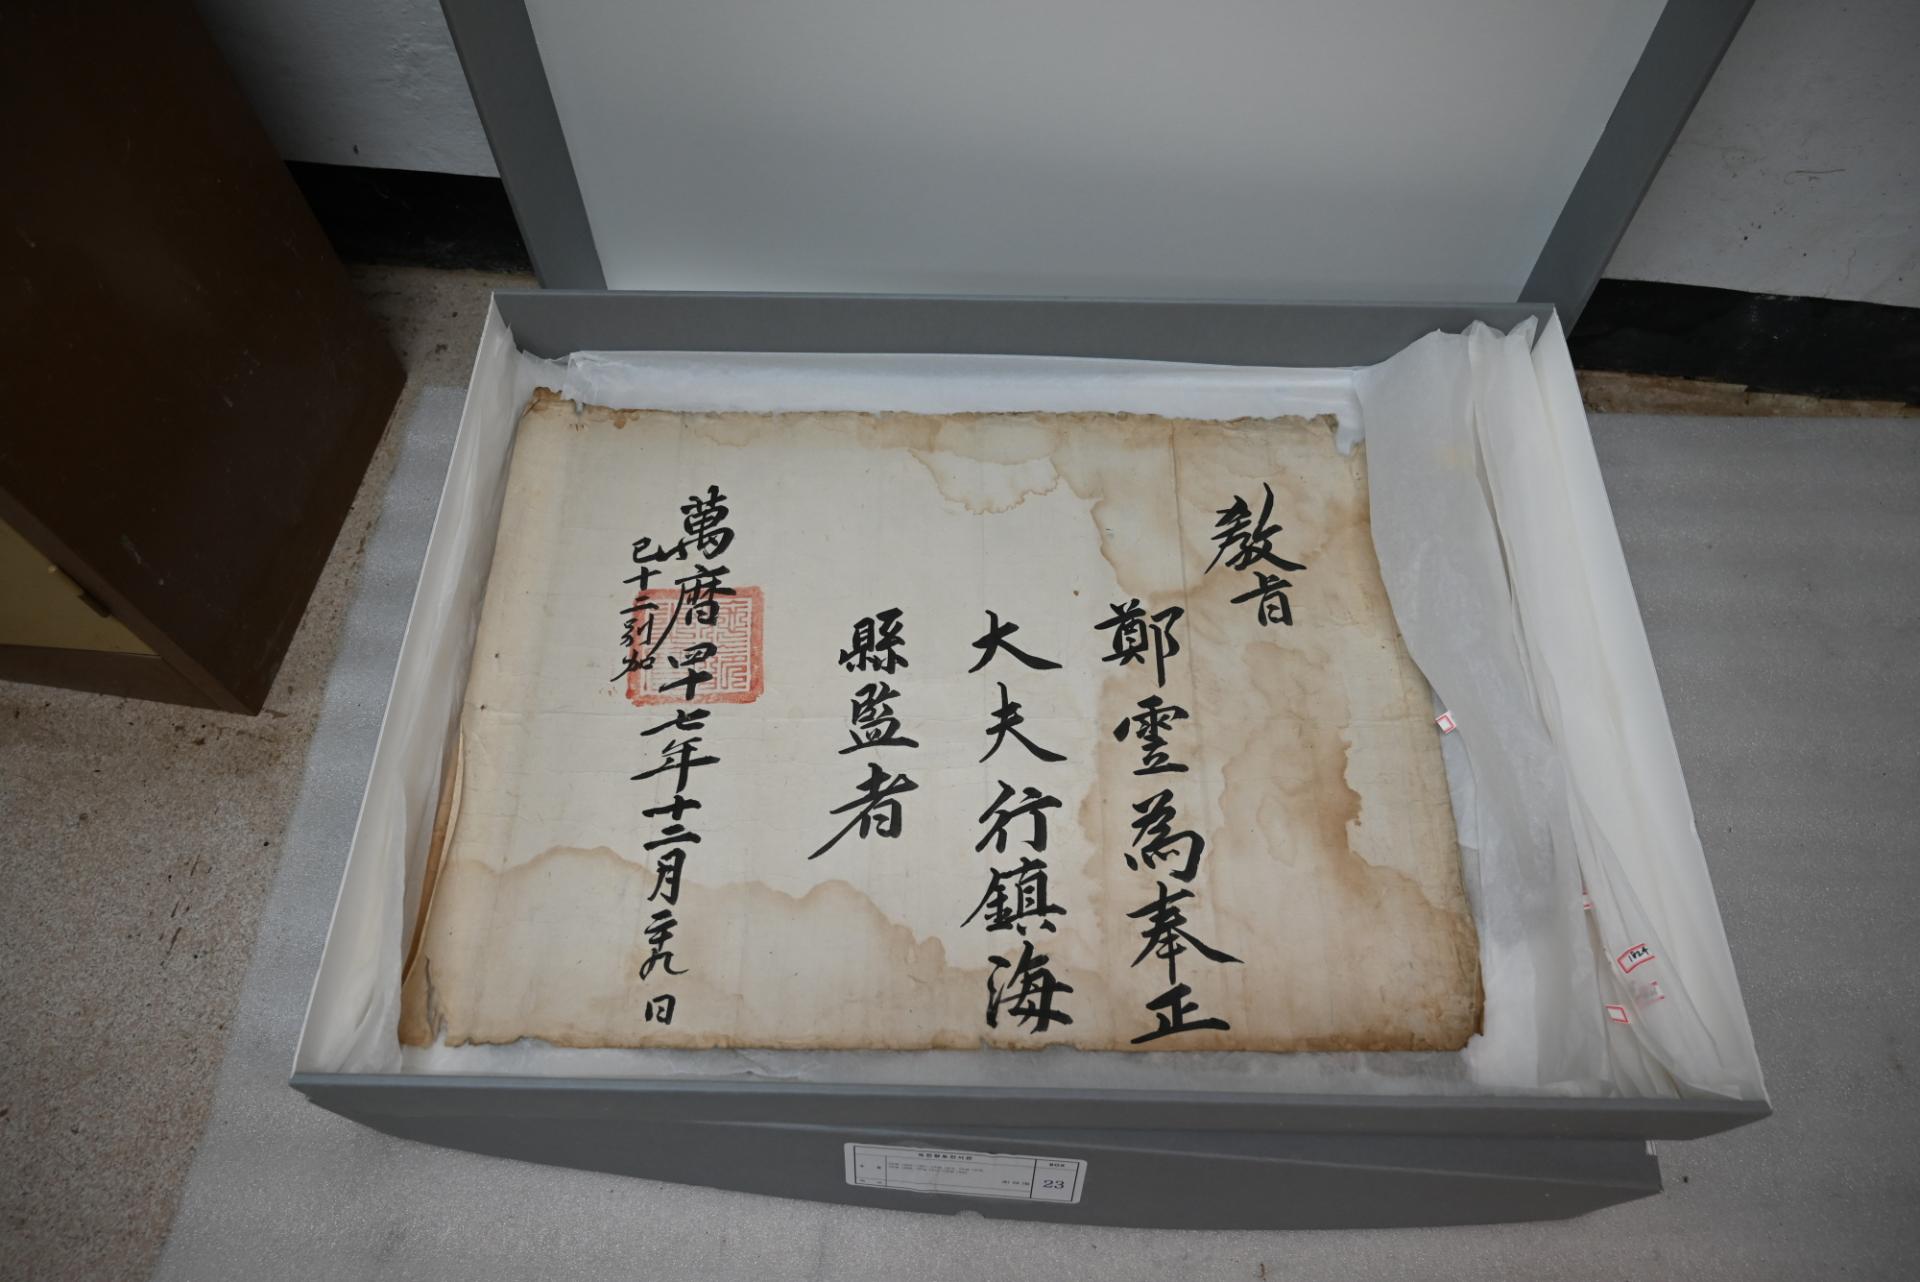 敎旨
鄭霊為奉正
大夫行鎮海
縣監者
萬曆四十七年十二月二十九日
已十二別加
BOX
23
1624